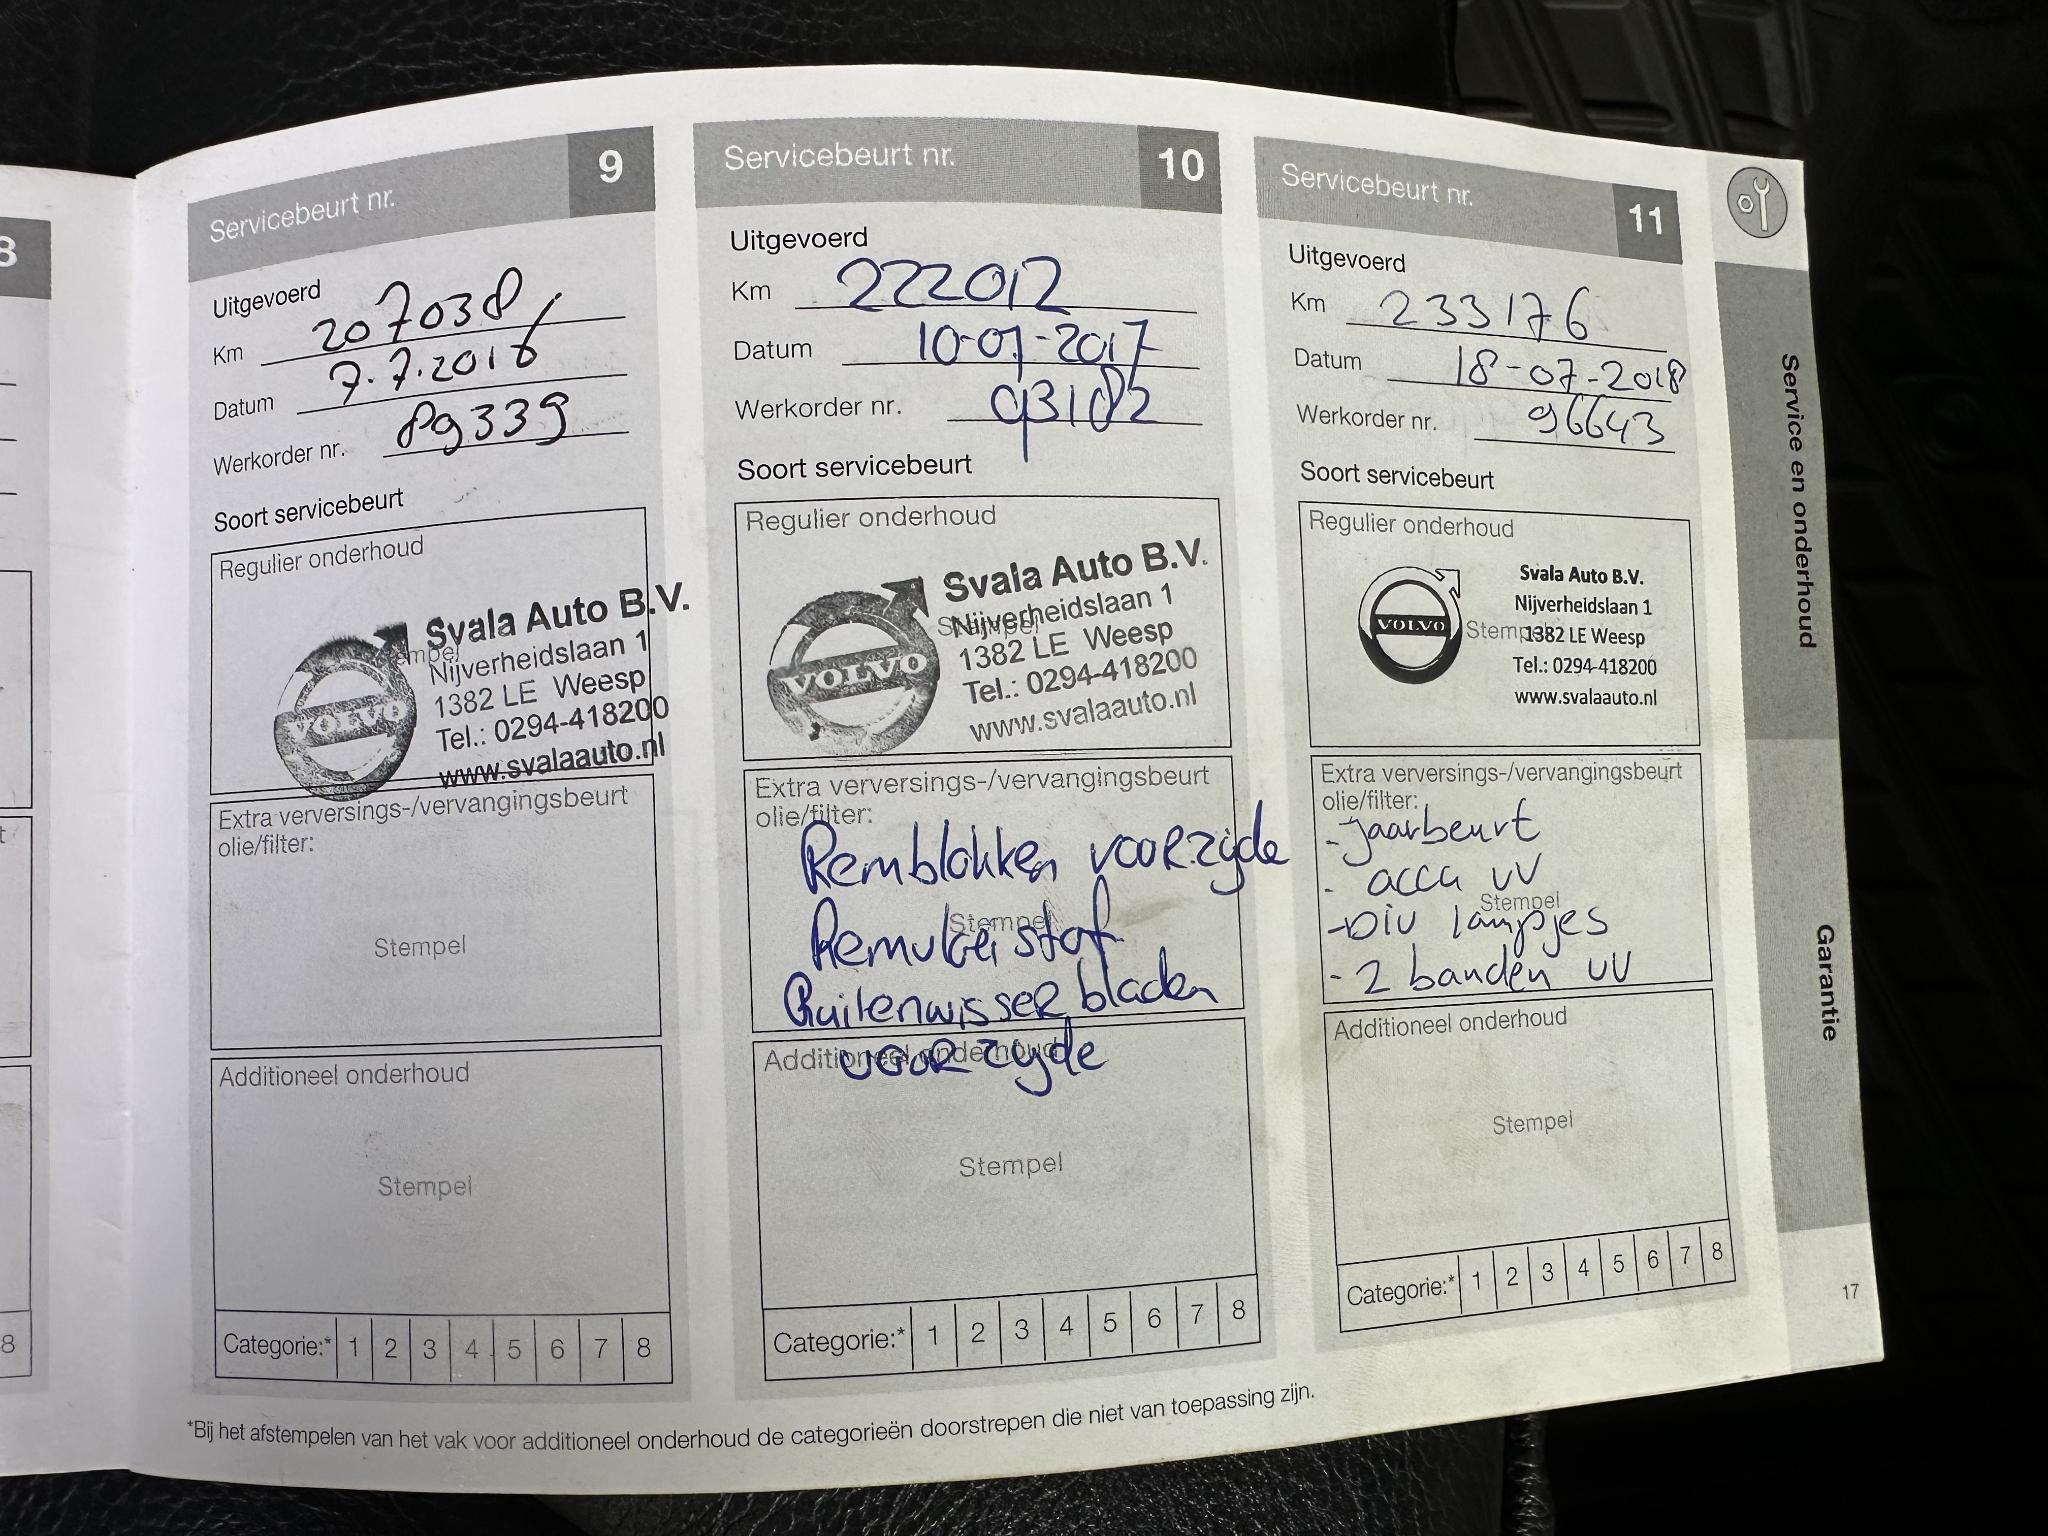 8
Servicebeurt nr. 9
Uitgevoerd
Km 207038
Datum 7.7.2016
Werkorder nr. 89339
Soort servicebeurt
Regulier onderhoud
Stempel
VOLVO
Svala Auto B.V.
Nijverheidslaan 1
1382 LE Weesp
Tel.: 0294-418200
www.svalaauto.nl
Extra verversings-/vervangingsbeurt
olie/filter:
Stempel
Additioneel onderhoud
Stempel
Categorie:* 1 2 3 4 5 6 7 8
Servicebeurt nr. 10
Uitgevoerd
Km 222012
Datum 10-07-2017
Werkorder nr. 93182
Soort servicebeurt
Regulier onderhoud
Stempel
VOLVO
Svala Auto B.V.
Nijverheidslaan 1
1382 LE Weesp
Tel.: 0294-418200
www.svalaauto.nl
Extra verversings-/vervangingsbeurt
olie/filter:
Remblokken voorzijde
Stempel
Remvloeistof
Ruitenwisserbladen
voorzijde
Additioneel onderhoud
Stempel
Categorie:* 1 2 3 4 5 6 7 8
Servicebeurt nr. 11
Uitgevoerd
Km 233176
Datum 18-07-2018
Werkorder nr. 96643
Soort servicebeurt
Regulier onderhoud
Stempel
VOLVO
Svala Auto B.V.
Nijverheidslaan 1
1382 LE Weesp
Tel.: 0294-418200
www.svalaauto.nl
Extra verversings-/vervangingsbeurt
olie/filter:
- jaarbeurt
- accu vv
Stempel
- Div lampjes
- 2 banden vv
Additioneel onderhoud
Stempel
Categorie:* 1 2 3 4 5 6 7 8
Service en onderhoud
Garantie
17
*Bij het afstempelen van het vak voor additioneel onderhoud de categorieën doorstrepen die niet van toepassing zijn.
8